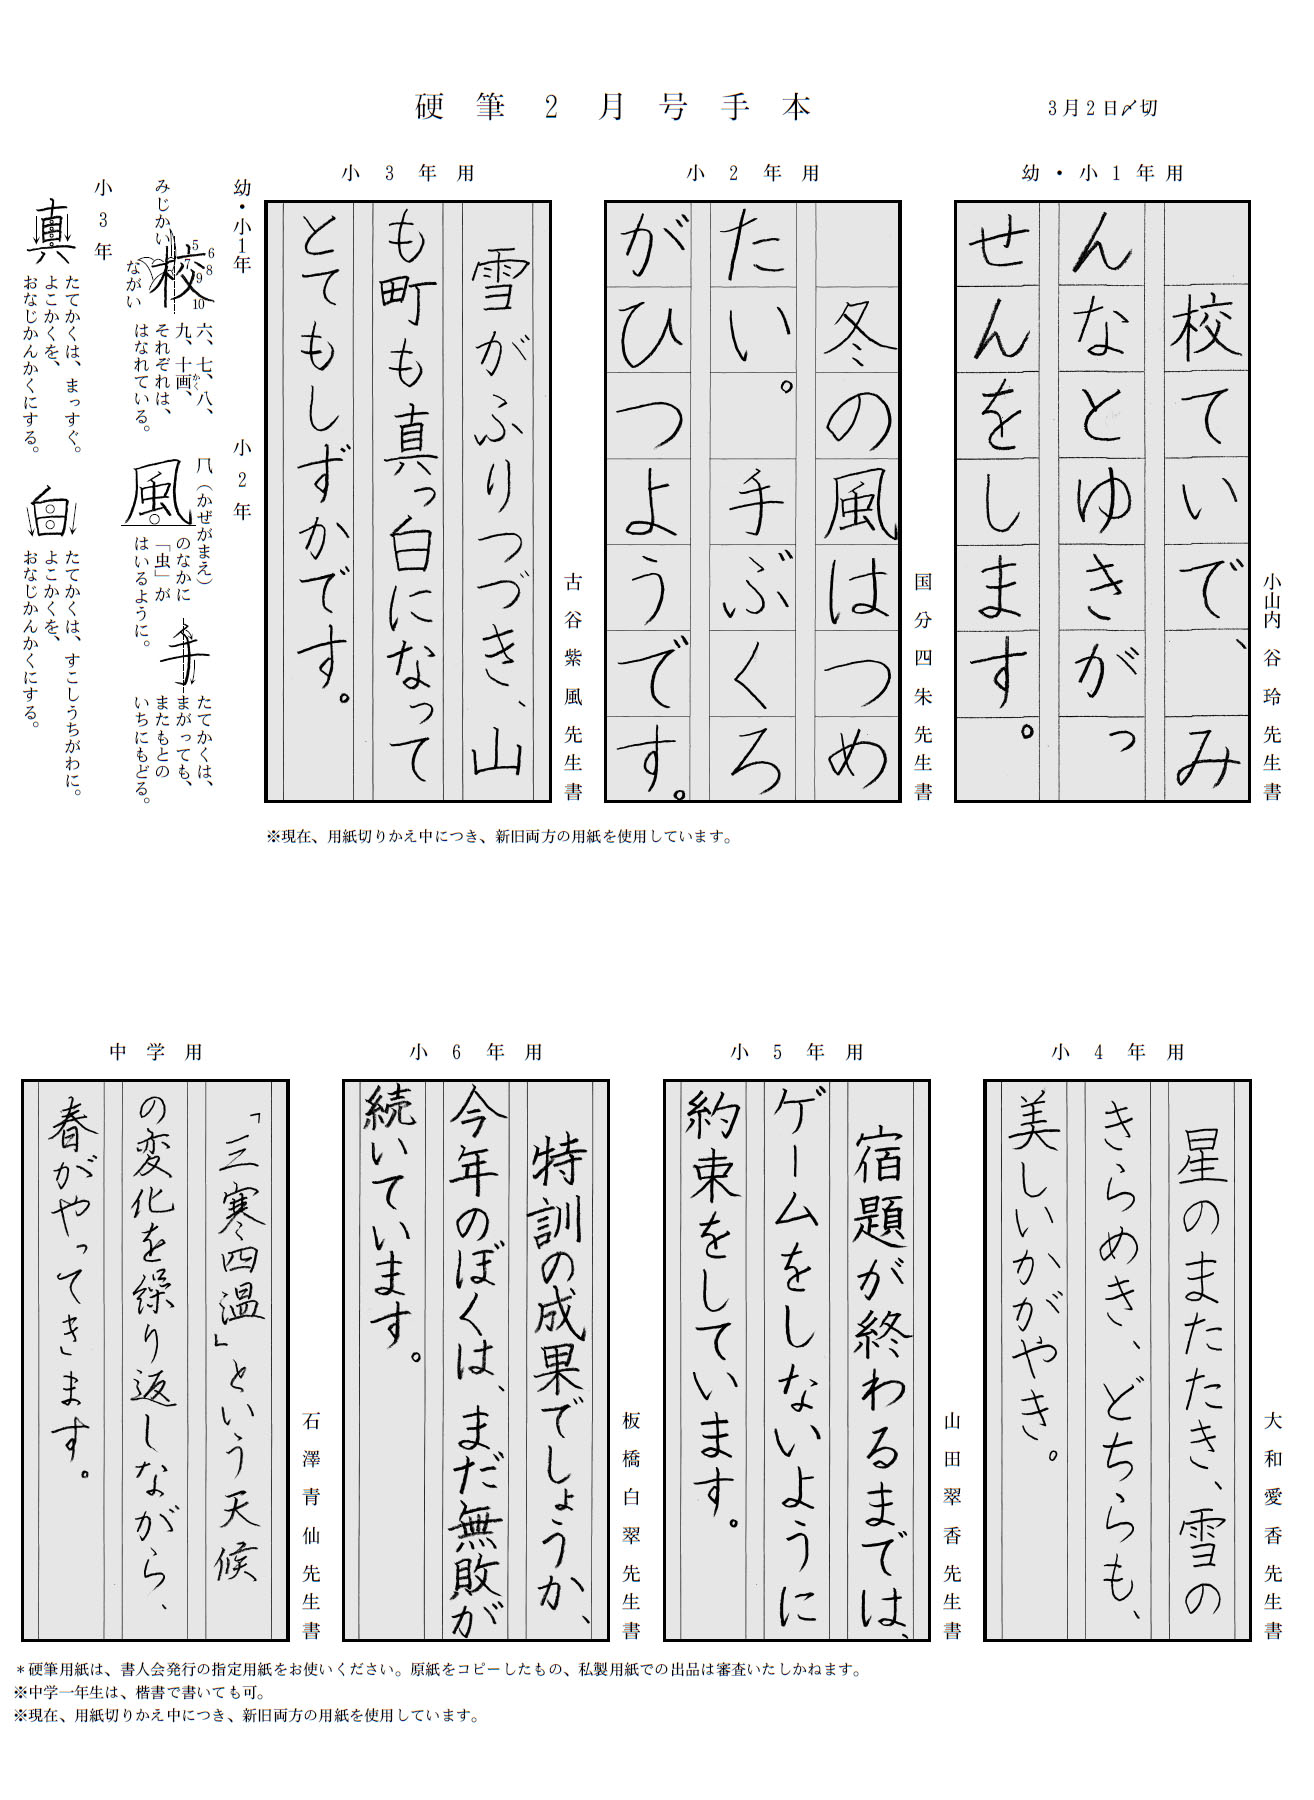 硬筆2月号手本
3月2日〆切
幼・小1年用
校ていで、み
んなとゆきがっ
せんをします。
小山内谷玲先生書
小2年用
冬の風はつめ
たい。手ぶくろ
がひつようです。
国分四朱先生書
小3年用
雪がふりつづき、山
も町も真っ白になって
とてもしずかです。
古谷紫風先生書
幼・小1年
みじかい
ながい
校
5
6
7
8
9
10
六、七、八、
九、十画、
かく
それぞれは、
はなれている。
小2年
⺇(かぜがまえ)
のなかに
「虫」が
はいるように。
風
手
たてかくは、
まがっても、
またもとの
いちにもどる。
小3年
真
たてかくは、まっすぐ。
よこかくを、
おなじかんかくにする。
白
たてかくは、すこしうちがわに。
よこかくを、
おなじかんかくにする。
※現在、用紙切りかえ中につき、新旧両方の用紙を使用しています。
小4年用
星のまたたき、雪の
きらめき、どちらも、
美しいかがやき。
大和愛香先生書
小5年用
宿題が終わるまでは、
ゲームをしないように
約束をしています。
山田翠香先生書
小6年用
特訓の成果でしょうか、
今年のぼくは、まだ無敗が
続いています。
板橋白翠先生書
中学用
「三寒四温」という天候
の変化を繰り返しながら、
春がやってきます。
石澤青仙先生書
*硬筆用紙は、書人会発行の指定用紙をお使いください。原紙をコピーしたもの、私製用紙での出品は審査いたしかねます。
※中学一年生は、楷書で書いても可。
※現在、用紙切りかえ中につき、新旧両方の用紙を使用しています。